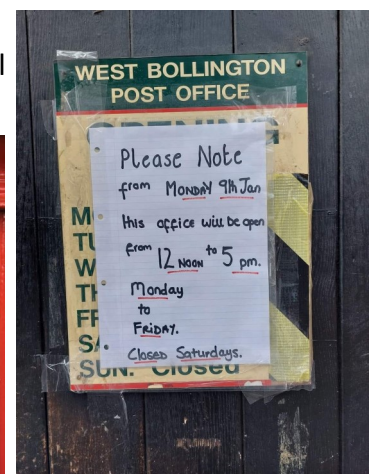 WEST BOLLINGTON
POST OFFICE
OPENING
Please Note
from MONDAY 9th Jan
this office will be open
from 12 NOON to 5 pm.
Monday
to
FRIDAY.
Closed Saturdays.
SUN. Closed